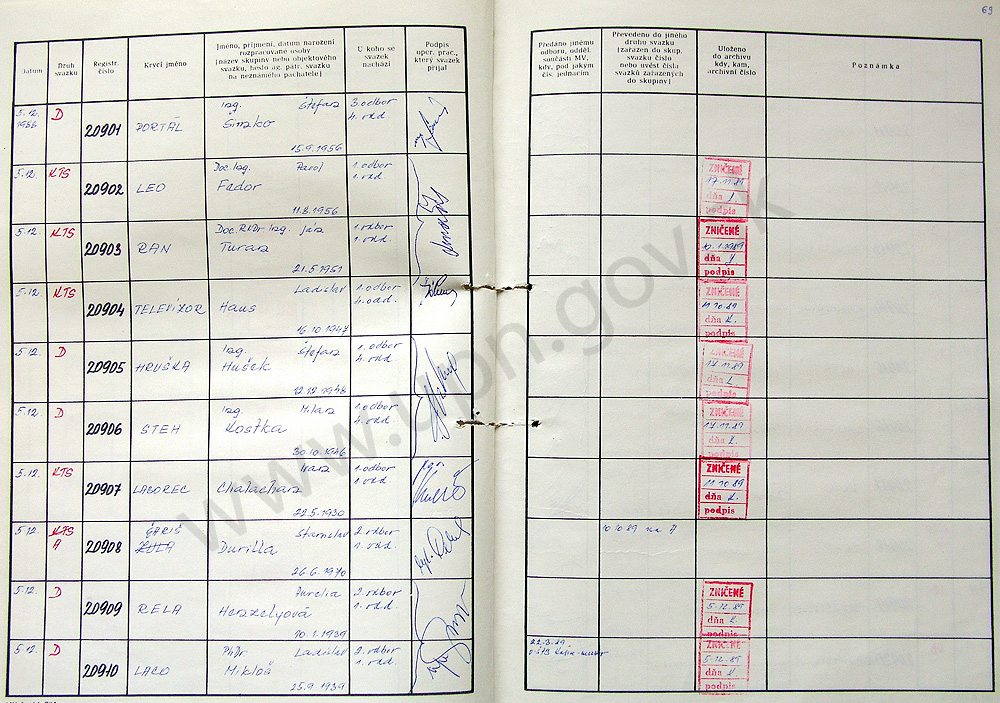 69
Datum
Druh svazku
Registr. číslo
Krycí jméno
Jméno, příjmení, datum narození
rozpracované osoby
[název skupiny nebo objektového
svazku, heslo ag. pátr. svazku
na neznámého pachatele]
U koho se
svazek
nachází
Podpis
oper. prac.,
který svazek
přijal
Předáno jinému
odboru, odděl.
součásti MV,
kdy, pod jakým
čís. jednacím
Převedeno do jiného
druhu svazku
[zařazen do skup.
svazku číslo
nebo uvést čísla
svazků zařazených
do skupiny]
Uloženo
do archivu
kdy, kam,
archivní číslo
Poznámka
5.12. D 20901 PORTÁL Ing. Štefan 3. odbor
Šimko 4. odd.
15.9.1956
5.12. KTS 20902 LEO Doc. Ing. Karol 1. odbor
Fedor 1. odd.
11.8.1956
ZNIČENÉ
17.11.89
dňa
podpis
5.12. KTS 20903 RAN Doc. RNDr. Ing. Ján 1. odbor
Turan 1. odd.
21.5.1951
ZNIČENÉ
dňa
podpis
5.12. KTS 20904 TELEVÍZOR Ladislav 1. odbor
Haus 4. odd.
16.10.1947
ZNIČENÉ
11.10.89
dňa
podpis
5.12. D 20905 HRUŠKA Ing. Štefan 1. odbor
Hušek 4. odd.
12.12.1948
ZNIČENÉ
17.11.89
dňa
podpis
5.12. D 20906 STEH Ing. Milan 1. odbor
Kostka 4. odd.
30.10.1946
ZNIČENÉ
17.11.89
dňa
podpis
5.12. KTS 20907 LABOREC Ivan 1. odbor
Chalachan 1. odd.
22.5.1930
ZNIČENÉ
11.10.89
dňa
podpis
5.12. KTS A 20908 Stanislav 2. odbor
Durilla 1. odd.
26.6.1970
10.10.89 na A
5.12. D 20909 RELA Aurelia 2. odbor
Henzelyová 1. odd.
10.1.1939
ZNIČENÉ
5.12.89
dňa
podpis
5.12. D 20910 LACO PhDr. Ladislav 2. odbor
Mikloš 1. odd.
25.9.1939
ZNIČENÉ
5.12.89
dňa
podpis
www.upn.gov.sk